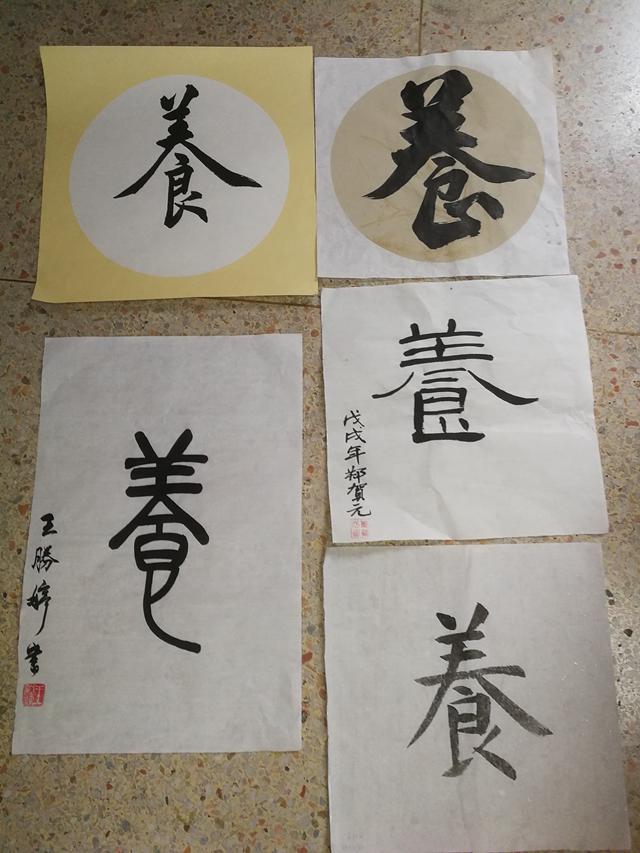 養
養
養
戊戌年郑賀元
養
王勝婷書
養